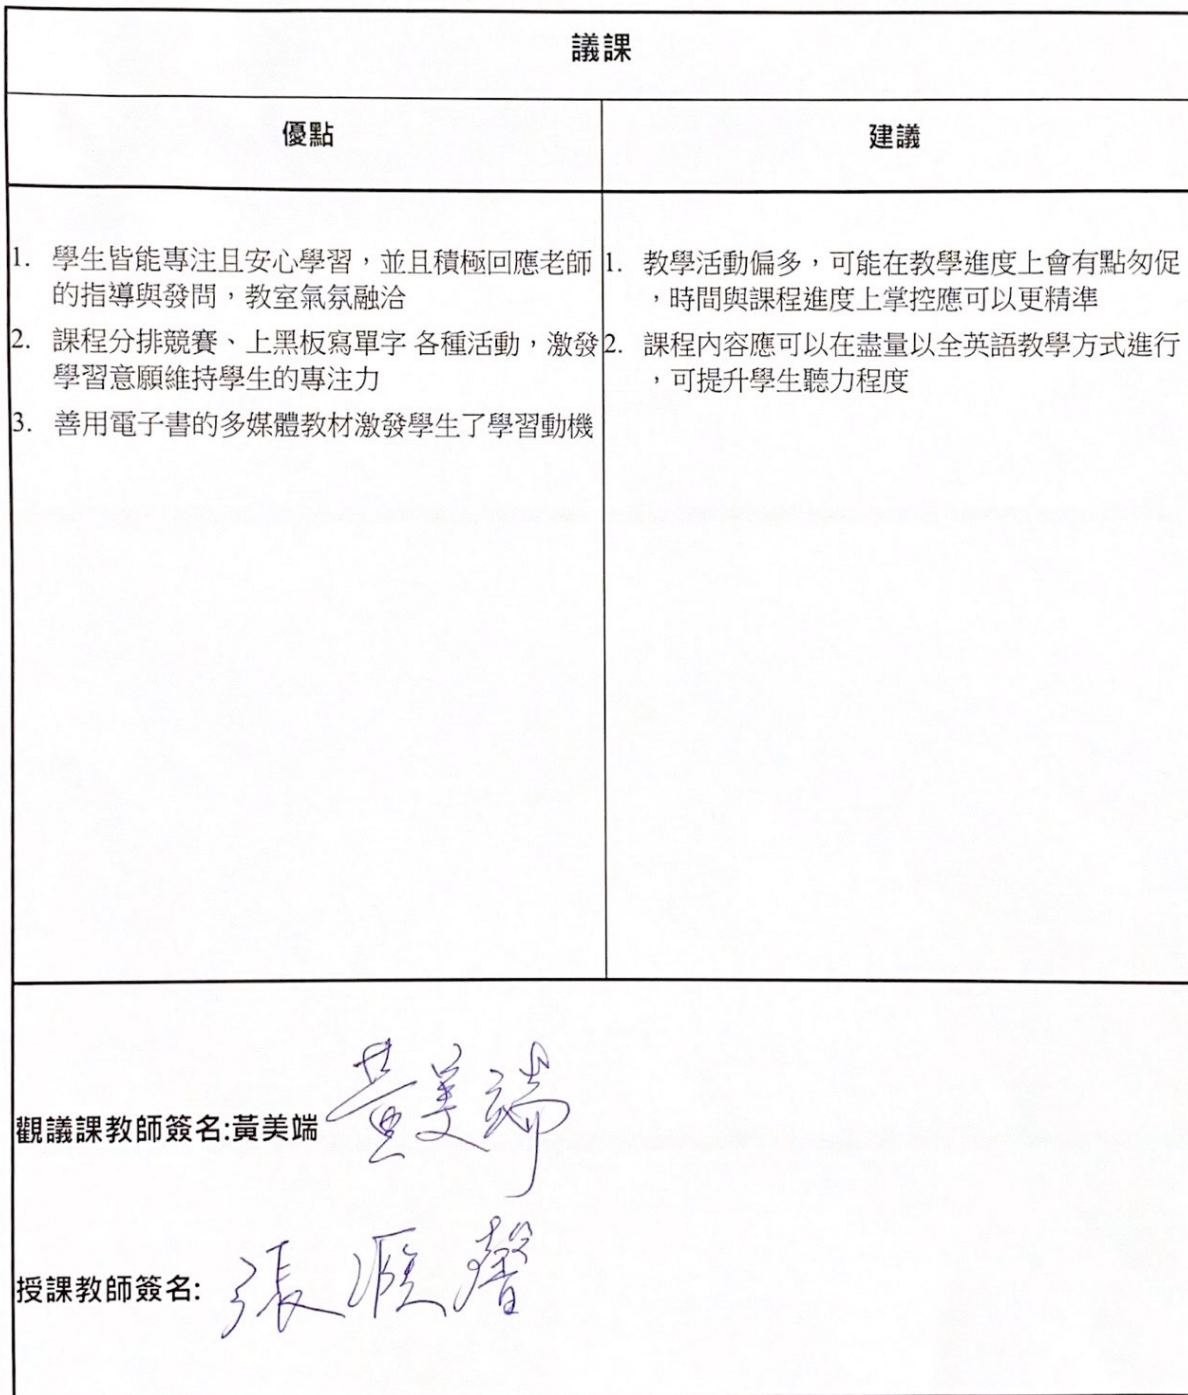 議課
優點
建議
1. 學生皆能專注且安心學習，並且積極回應老師
的指導與發問，教室氣氛融洽
2. 課程分排競賽、上黑板寫單字 各種活動，激發
學習意願維持學生的專注力
3. 善用電子書的多媒體教材激發學生了學習動機
1. 教學活動偏多，可能在教學進度上會有點匆促
，時間與課程進度上掌控應可以更精準
2. 課程內容應可以在盡量以全英語教學方式進行
，可提升學生聽力程度
觀議課教師簽名:黃美端 黃美端
授課教師簽名: 張 馨